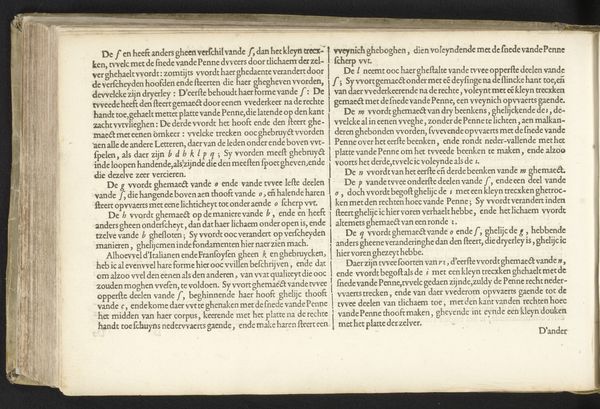 De ſ en heeft anders gheen verſchil vande ſ, dan het kleyn trecx-
ken, tvvelc met de ſnede vande Penne dvvers door tlichaem der zel-
ver ghehaelt vvordt: zomtijts vvordt haer ghedaente verandert door
de verſcheyden hoofden ende ſteerten die haer ghegheven vvorden,
devvelcke zijn dryerley: D'eerſte behoudt haer forme vande ſ: De
tvveede heeft den ſteert gemaect door eenen vvederkeer na de rechte
handt toe, gehaelt metter platte vande Penne, die latende op den kant
zacht vvtvlieghen: De derde vvordt het hooft ende den ſteert ghe-
maect met eenen omkeer: vvelcke trecken ooc ghebruyct vvorden
aen alle de andere Letteren, daer van de leden onder ende boven vvt-
ſpelen, als daer zijn b d h k l p q; Sy vvorden meeſt ghebruyct
inde loopen handende, als zijnde die den meeſten ſpoet gheven, ende
die dezelve zeer vercieren.
De g vvordt ghemaect vande o ende vande tvvee leſte deelen
vande ſ, die hangende boven aen thooft vande o, eñ halende haren
ſteert opvvaerts met eene lichtricheyt tot onder aende o ſcherp vvt.
De h vvordt ghemaect op de maniere vande b, ende en heeft
anders gheen onderſcheyt, dan dat haer lichaem onder open is, ende
tzelve vande b gheſloten; Sy vvordt ooc verandert op verſcheyden
manieren, ghelijcmen inde fondamenten hier naer zien mach.
Alhoevvel d'Italianen ende Franſoyſen gheen k en ghebruycken,
heb ic al evenvvel hare forme hier ooc vvillen beſchrijven, ende dat
om alzoo vvel den eenen als den anderen, van vvat qualiteyt die ooc
zouden moghen vveſen, te voldoen. Sy vvort ghemaect vande tvvee
opperſte deelen vande ſ, beghinnende haer hooft ghelijc thooft
vande c, ende kome daer vvt te ghenaken met de ſnede vande Penne
het midden van haer corpus, keerende met het platte na de rechte
handt toe ſchuyns nedervvaerts gaende, ende make haren ſteert een
vveynich gheboghen, dien voleyndende met de ſnede vande Penne
ſcherp vvt.
De l neemt ooc haer gheſtalte vande tvvee opperſte deelen vande
ſ; Sy vvort gemaect onder met eē deyſinge na de ſlincke hant toe, eñ
van daer vvederkeerende na de rechte, voleynt met eē kleyn trecxken
gemaect met de ſnede vande Penne, een vveynich opvvaerts gaende.
De m vvordt ghemaect van dry beenkens, ghelijckende de 1, de-
vvelcke al in eenen vveghe, zonder de Penne te lichten, aen malkan-
deren ghebonden vvorden, ſvvevende opvvaerts met de ſnede vande
Penne over het eerſte beenken, ende rondt neder-vallende met het
platte vande Penne om het tvveede beenken te maken, ende alzoo
voorts het derde, tvvelc ic voleynde als de 1.
De n vvordt van het eerſte eñ derde beenken vande m ghemaect.
De p vande tvvee onderſte deelen vande ſ, ende een deel vande
o, doch vvordt begoſt ghelijc de i met een kleyn trecxken ghetroc-
ken met den rechten hoec vande Penne; Sy vvordt verandert inden
ſteert ghelijc ic hier voren verhaelt hebbe, ende het lichaem vvordt
altemets ghemaect van een ronde 2.
De q vvordt ghemaect vande o ende ſ, ghelijc de g, hebbende
anders gheene veranderinghe dan den ſteert, die dryerley is, ghelijc ic
hier voren ghezeyt hebbe.
Daer zijn tvvee ſoorten van r1, d'eerſte vvordt ghemaect vande n,
ende vvordt begoſt als de i met een kleyn trecxken ghehaelt met de
ſnede vande Penne, tvvelc gedaen zijnde, zuldy de Penne recht neder-
vvaerts trecken, ende van daer vvederom opvvaerts gaende tot de
tvvee deelen van tlichaem toe, met den kant vanden rechten hoec
vande Penne thooft maken, ghevende int eynde een kleyn douken
met het platte der zelver.
D'ander